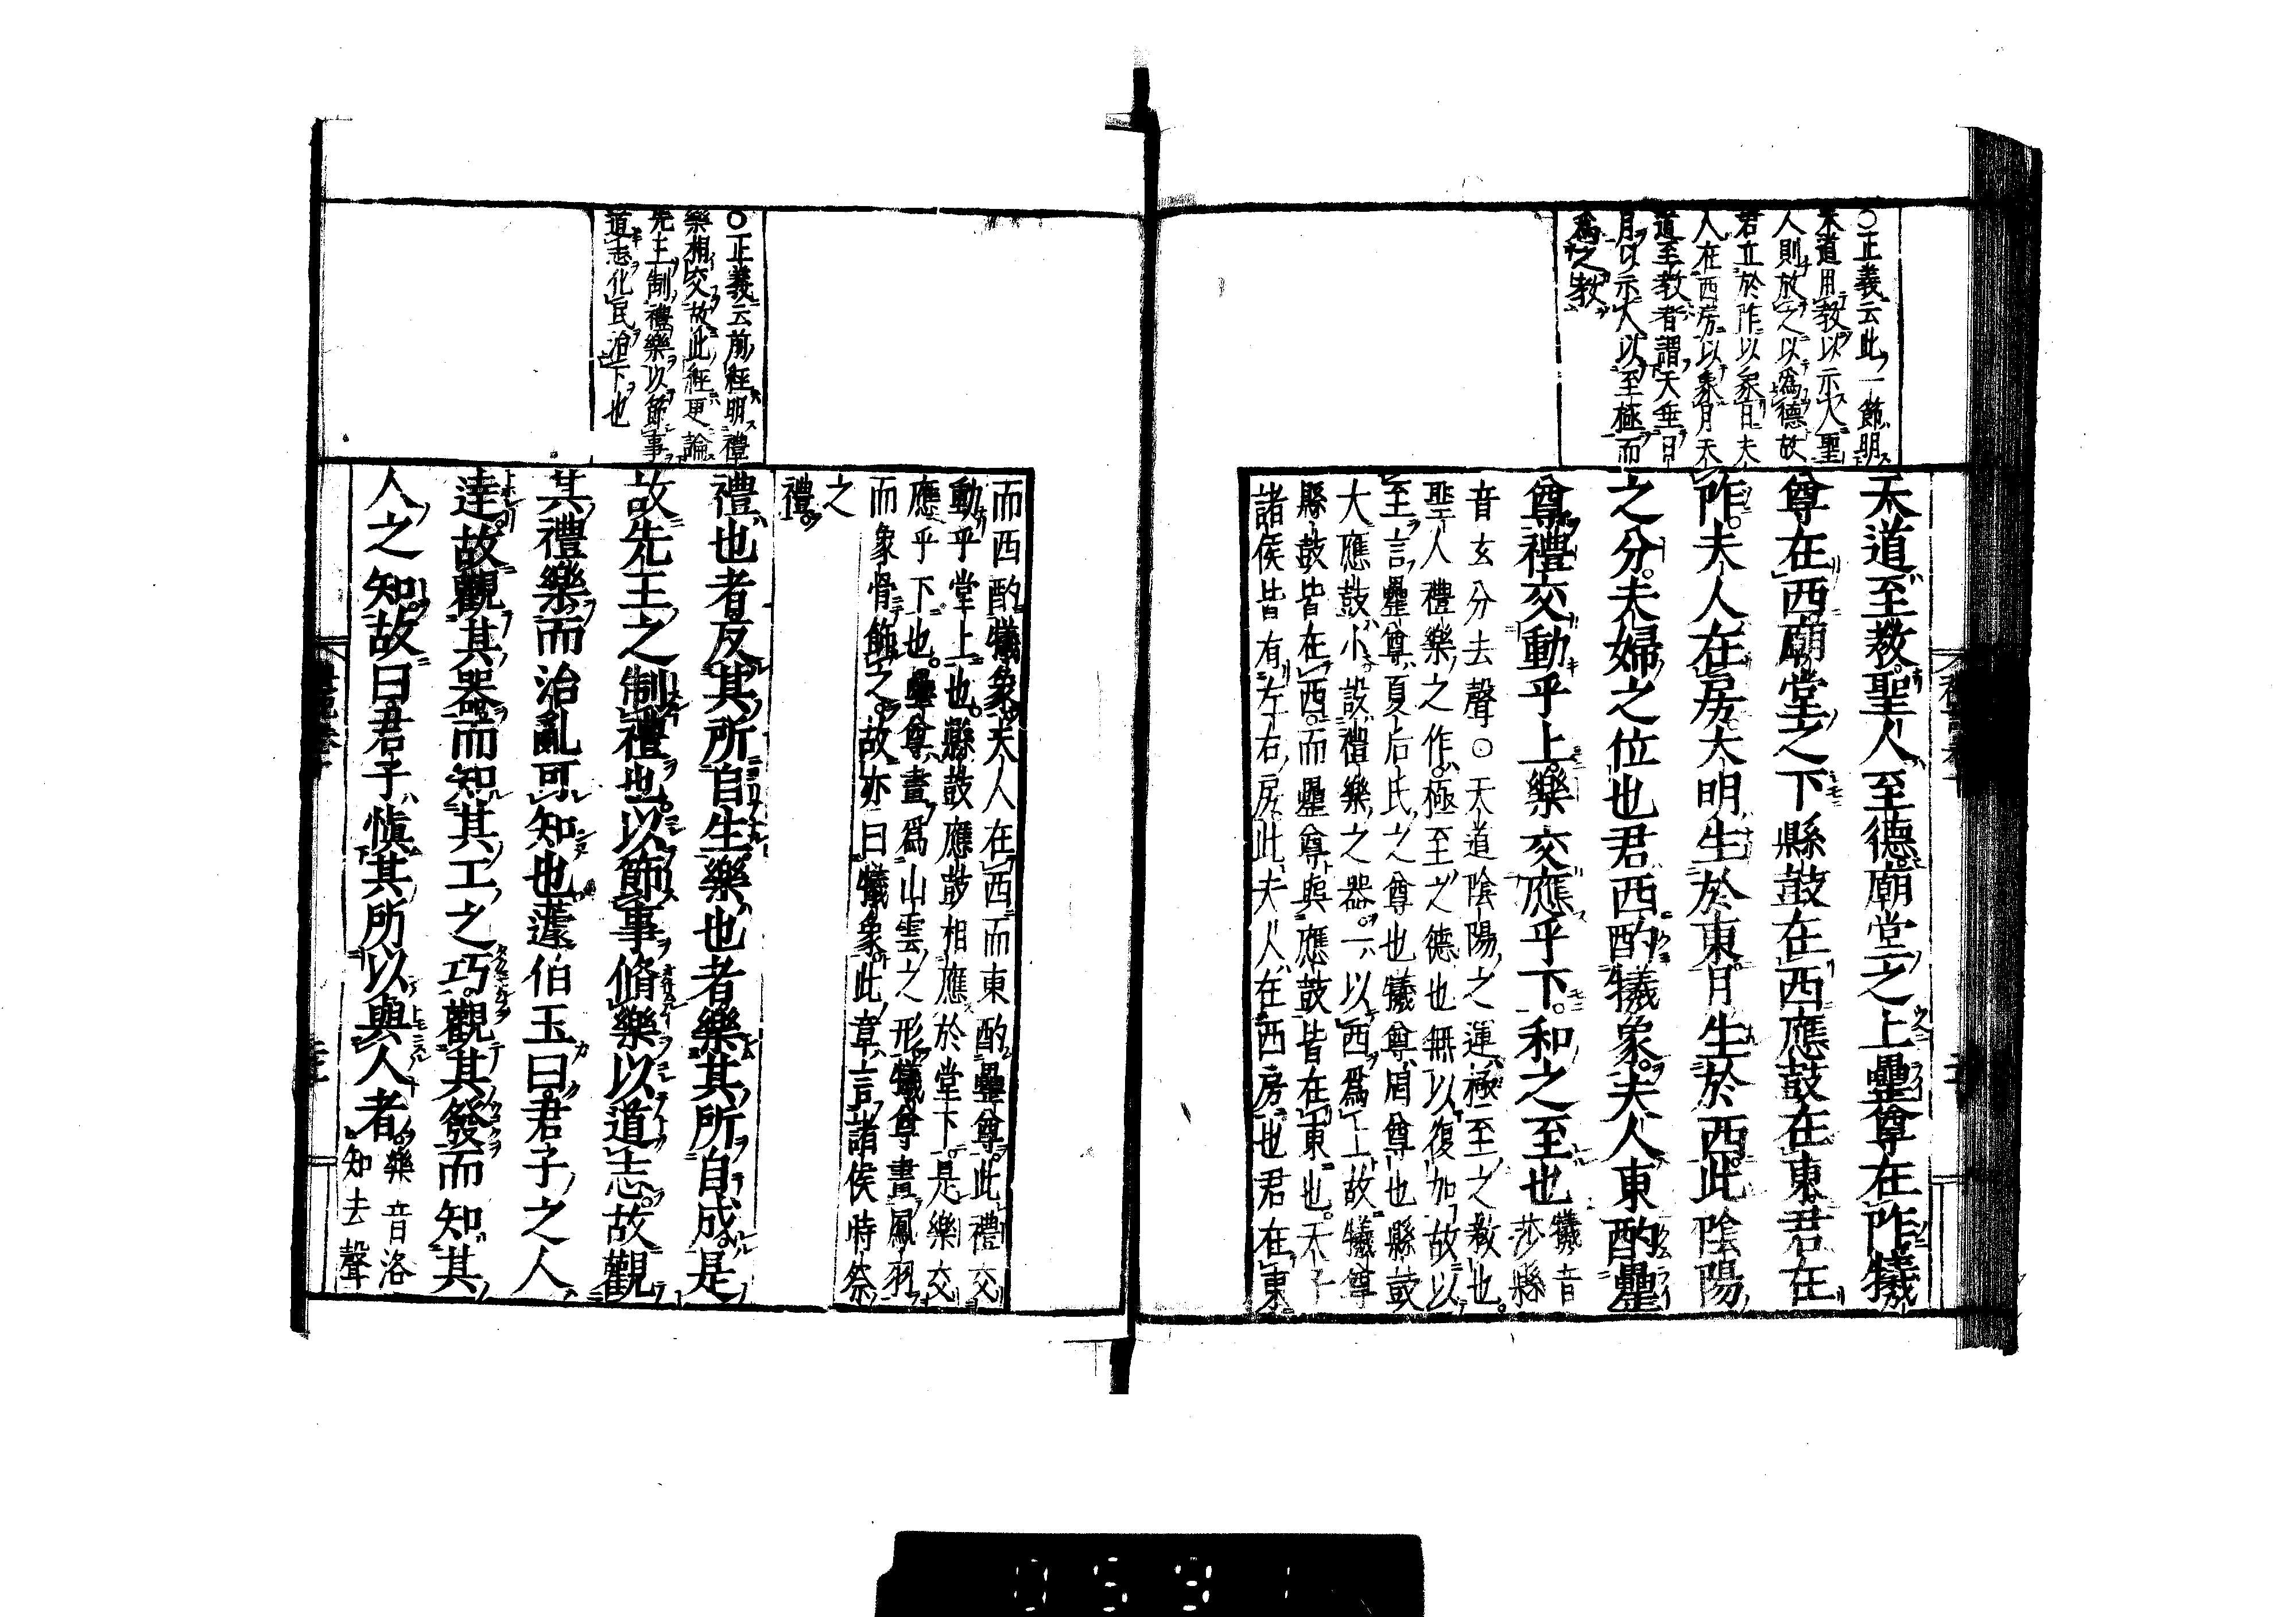 ○正義云此一節明
末道用教以示人聖
人則放之以爲德故
君立於阼以象日夫
人在西房以象月天
道至教者謂天垂日
月以示人以至極而
爲之教
天道至教聖人至德廟堂之上罍尊在阼犧
尊在西廟堂之下縣鼓在西應鼓在東君在
阼夫人在房大明生於東月生於西此陰陽
之分夫婦之位也君西酌犧象夫人東酌罍
尊禮交動乎上樂交應乎下和之至也犧音莎縣
音玄分去聲○天道陰陽之運極至之教也
聖人禮樂之作極至之德也無以復加故以
至言罍尊夏后氏之尊也犧尊周尊也縣鼓
大應鼓小設禮樂之器一以西爲上故犧尊
縣鼓皆在西而罍尊與應鼓皆在東也天子
諸侯皆有左右房此夫人在西房也君在東
而西酌犧象夫人在西而東酌罍尊此禮交
動乎堂上也縣鼓應鼓相應於堂下是樂交
應乎下也罍尊畫爲山雲之形犧尊畫鳳羽
而象骨飾之故亦曰犧象此章言諸侯時祭
之
禮
○正義云前經明禮
樂相交故此經更論
先王制禮樂以節事
道志化民治下也
禮也者反其所自生樂也者樂其所自成是
故先王之制禮也以節事脩樂以道志故觀
其禮樂而治亂可知也蘧伯玉曰君子之人
達故觀其器而知其工之巧觀其發而知其
人之知故曰君子愼其所以與人者樂音洛知去聲